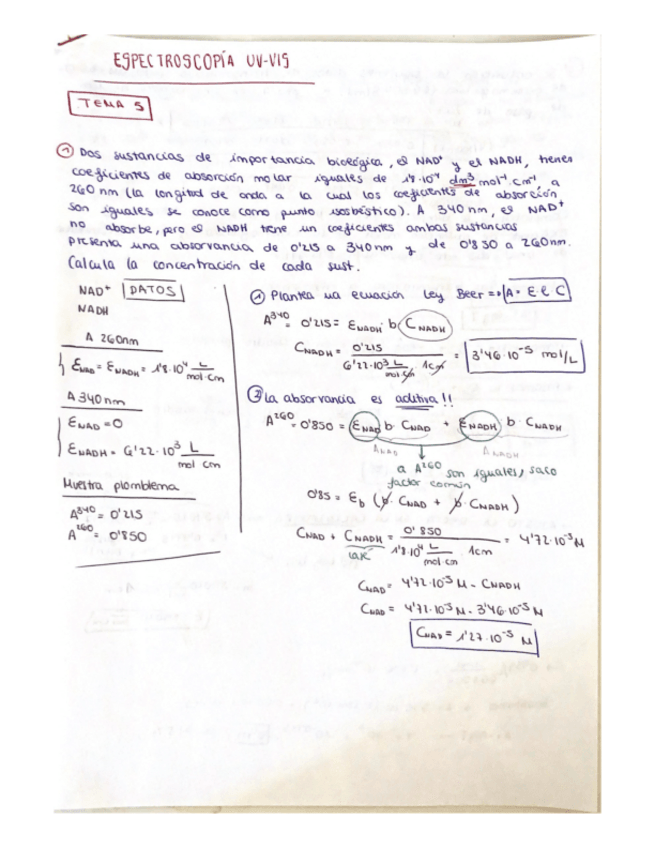 ESPECTROSCOPÍA UV-VIS
TEMA 5
1 Dos sustancias de importancia biológica, el NAD⁺ y el NADH, tienen
coeficientes de absorción molar iguales de 1'8·10⁴ dm³ mol⁻¹ cm⁻¹ a
260 nm (la longitud de onda a la cual los coeficientes de absorción
son iguales se conoce como punto isosbéstico). A 340 nm, el NAD⁺
no absorbe, pero el NADH tiene un coeficientes ambas sustancias
presenta una absorvancia de 0'215 a 340nm y de 0'850 a 260nm.
Calcula la concentración de cada sust.
NAD⁺ DATOS
NADH
A 260nm
ε_NAD = ε_NADH = 1'8·10⁴ L/mol·cm
A 340nm
ε_NAD = 0
ε_NADH = 6'22·10³ L/mol cm
Muestra
A³⁴⁰ = 0'215
A²⁶⁰ = 0'850
1 Plantea ua ecuación Ley Beer => A = ε·l C
A³⁴⁰ = 0'215 = ε_NADH · b C_NADH
C_NADH = 0'215 / 6'22·10³ L/mol·cm · 1cm = 3'46·10⁻⁵ mol/L
2 La absorvancia es aditiva!!
A²⁶⁰ = 0'850 = ε_NAD b C_NAD + ε_NADH b C_NADH
A_NAD A_NADH
a A²⁶⁰ son iguales, saco
factor común
0'85 = εb (b·C_NAD + b·C_NADH)
C_NAD + C_NADH = 0'850 / 1'8·10⁴ L/mol·cm · 1cm = 4'72·10⁻⁵ M
C_NAD = 4'72·10⁻⁵ M - C_NADH
C_NAD = 4'72·10⁻⁵ M - 3'46·10⁻⁵ M
C_NAD = 1'27·10⁻⁵ M